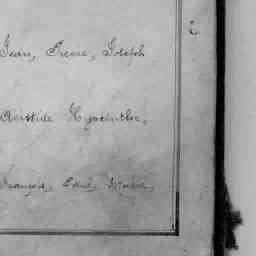 Jean, Pierre, Joseph
Aristide Hyacinthe,
François, Paul, Marie